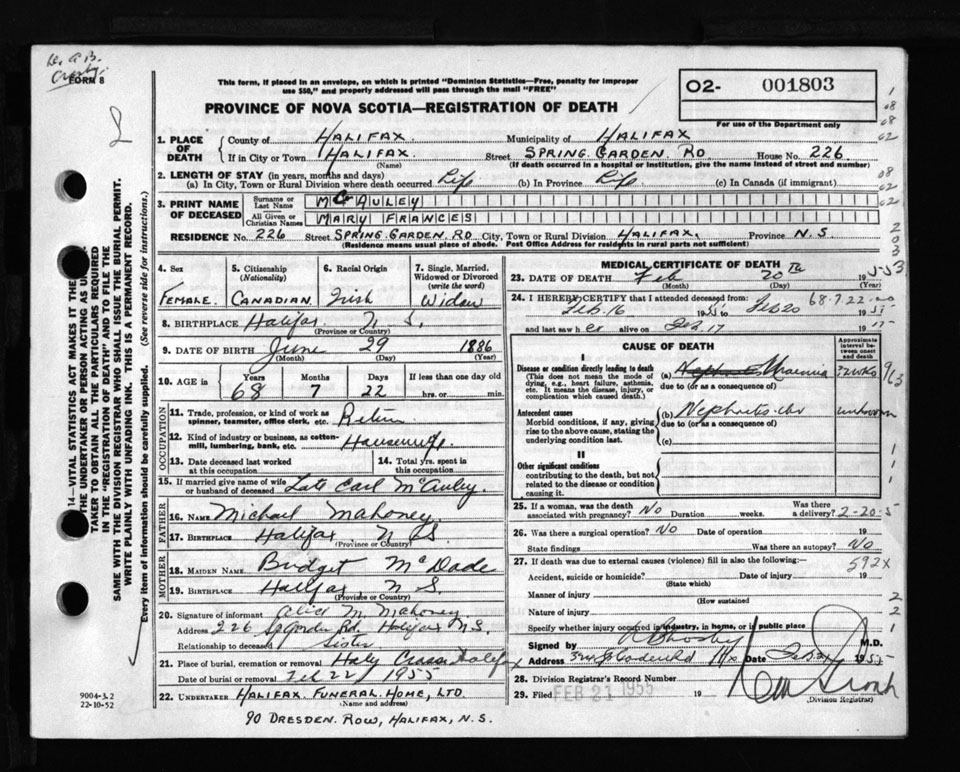 FORM 8
This form, if placed in an envelope, on which is printed "Dominion Statistics—Free, penalty for improper
use $50," and properly addressed will pass through the mail "FREE"
PROVINCE OF NOVA SCOTIA—REGISTRATION OF DEATH
02- 001803
For use of the Department only
1. PLACE OF DEATH
County of HALIFAX Municipality of HALIFAX
If in City or Town HALIFAX Street SPRING GARDEN RD House No. 226
(Name) (If death occurred in a hospital or institution, give the name instead of street and number)
2. LENGTH OF STAY (in years, months and days)
(a) In City, Town or Rural Division where death occurred Life (b) In Province Life (c) In Canada (if immigrant)
3. PRINT NAME OF DECEASED
Surname or Last Name McAULEY
All Given or Christian Names MARY FRANCES
RESIDENCE No. 226 Street SPRING GARDEN RD City, Town or Rural Division HALIFAX, Province N.S.
(Residence means usual place of abode. Post Office Address for residents in rural parts not sufficient)
4. Sex FEMALE
5. Citizenship (Nationality) CANADIAN
6. Racial Origin Irish
7. Single, Married, Widowed or Divorced (write the word) Widow
8. BIRTHPLACE Halifax N. S.
(Province or Country)
9. DATE OF BIRTH June 29 1886
(Month) (Day) (Year)
10. AGE in Years 68 Months 7 Days 22 If less than one day old hrs. or min.
OCCUPATION
11. Trade, profession, or kind of work as spinner, teamster, office clerk, etc.
12. Kind of industry or business, as cotton-mill, lumbering, bank, etc. Housewife
13. Date deceased last worked at this occupation
14. Total yrs. spent in this occupation
15. If married give name of wife or husband of deceased Late Carl McAuley.
FATHER
16. NAME Michael Mahoney
17. BIRTHPLACE Halifax N S.
(Province or Country)
MOTHER
18. MAIDEN NAME Bridget McDade
19. BIRTHPLACE Halifax N S.
(Province or Country)
20. Signature of informant Alice M. Mahoney
Address 226 Sp Garden Rd. Halifax N.S.
Relationship to deceased Sister
21. Place of burial, cremation or removal Holy Cross Halifax
Date of burial or removal Feb 22 / 1955
22. UNDERTAKER HALIFAX FUNERAL HOME, LTD.
(Name and address)
90 DRESDEN ROW, HALIFAX, N.S.
9004-3.2
22-10-52
MEDICAL CERTIFICATE OF DEATH
23. DATE OF DEATH Feb 20th 1955
(Month) (Day)
24. I HEREBY CERTIFY that I attended deceased from:
Feb. 16 1955 to Feb 20 1955
and last saw her alive on Feb. 17 19
68-7-22
CAUSE OF DEATH
Approximate interval between onset and death
I
Disease or condition directly leading to death
(This does not mean the mode of dying, e.g., heart failure, asthenia, etc. It means the disease, injury or complication which caused death.)
(a) Uraemia
due to (or as a consequence of)
Antecedent causes
Morbid conditions, if any, giving rise to the above cause, stating the underlying condition last.
(b) Nephritis chr unknown
due to (or as a consequence of)
(c)
II
Other significant conditions
contributing to the death, but not related to the disease or condition causing it.
25. If a woman, was the death associated with pregnancy? No Duration weeks. Was there a delivery?
2-20-5
26. Was there a surgical operation? No Date of operation 19
State findings Was there an autopsy? No
27. If death was due to external causes (violence) fill in also the following:—
592X
Accident, suicide or homicide? Date of injury 19
(State which)
Manner of injury
(How sustained
Nature of injury
Specify whether injury occurred in industry, in home, or in public place
Signed by A B Crosby M.D.
Address Hfx Date Feb 21 1955
28. Division Registrar's Record Number
29. Filed FEB 21 1955
(Division Registrar)
14—VITAL STATISTICS ACT MAKES IT THE
THE UNDERTAKER OR PERSON ACTING AS
TAKER TO OBTAIN ALL THE PARTICULARS REQUIRED
IN THE "REGISTRATION OF DEATH" AND TO FILE THE
SAME WITH THE DIVISION REGISTRAR WHO SHALL ISSUE THE BURIAL PERMIT.
WRITE PLAINLY WITH UNFADING INK. THIS IS A PERMANENT RECORD.
Every item of information should be carefully supplied. (See reverse side for instructions.)